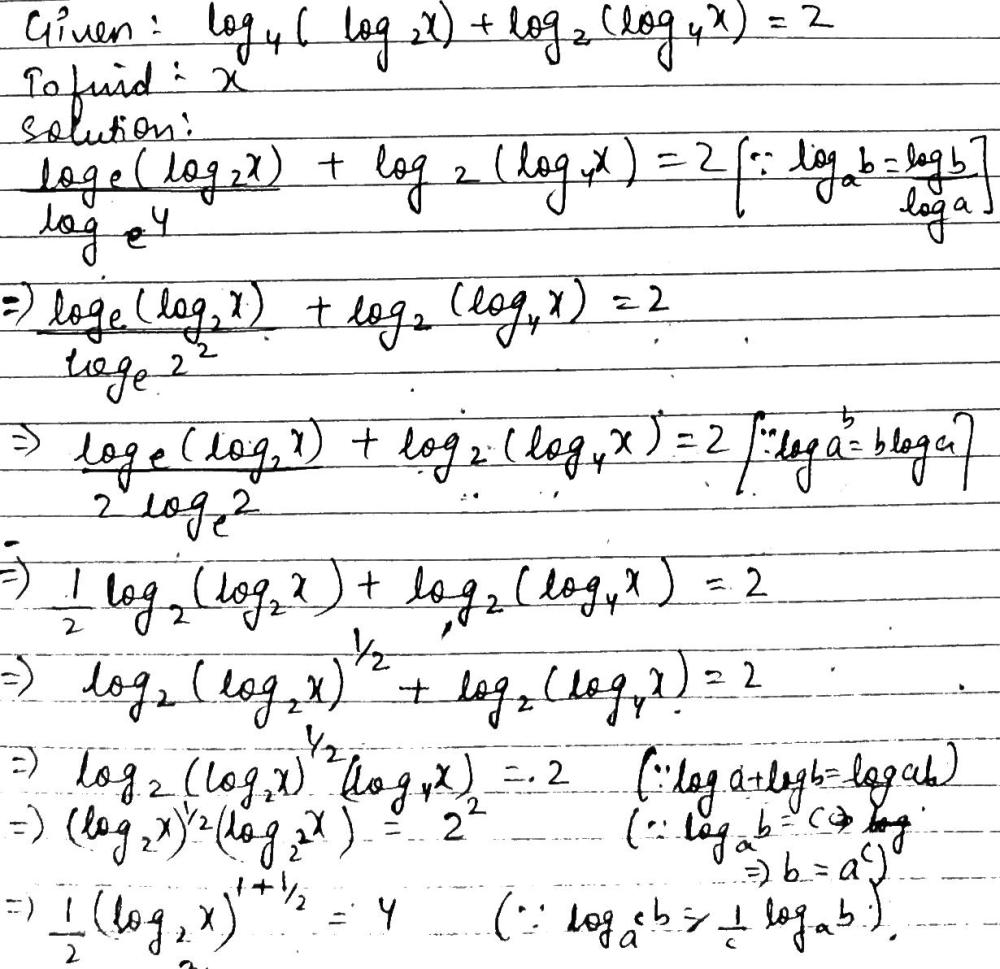 Given: log₄( log₂x) + log₂(log₄x) = 2
To find : x
solution:
logₑ(log₂x)/logₑ4 + log₂(log₄x) = 2 [∵ logₐb = logb/loga]
=) logₑ(log₂x)/logₑ2² + log₂(log₄x) = 2
=) logₑ(log₂x)/2logₑ2 + log₂(log₄x) = 2 [∵ logaᵇ = b loga]
=) 1/2 log₂(log₂x) + log₂(log₄x) = 2
=) log₂(log₂x)^1/2 + log₂(log₄x) = 2
=) log₂(log₂x)^1/2 (log₄x) = 2 (∵ loga+logb = logab)
=) (log₂x)^1/2 (log_2² x) = 2² (∵ logₐb = c
=) b = aᶜ)
=) 1/2 (log₂x)^1+1/2 = 4 (∵ log_aᶜ b = 1/c logₐb).